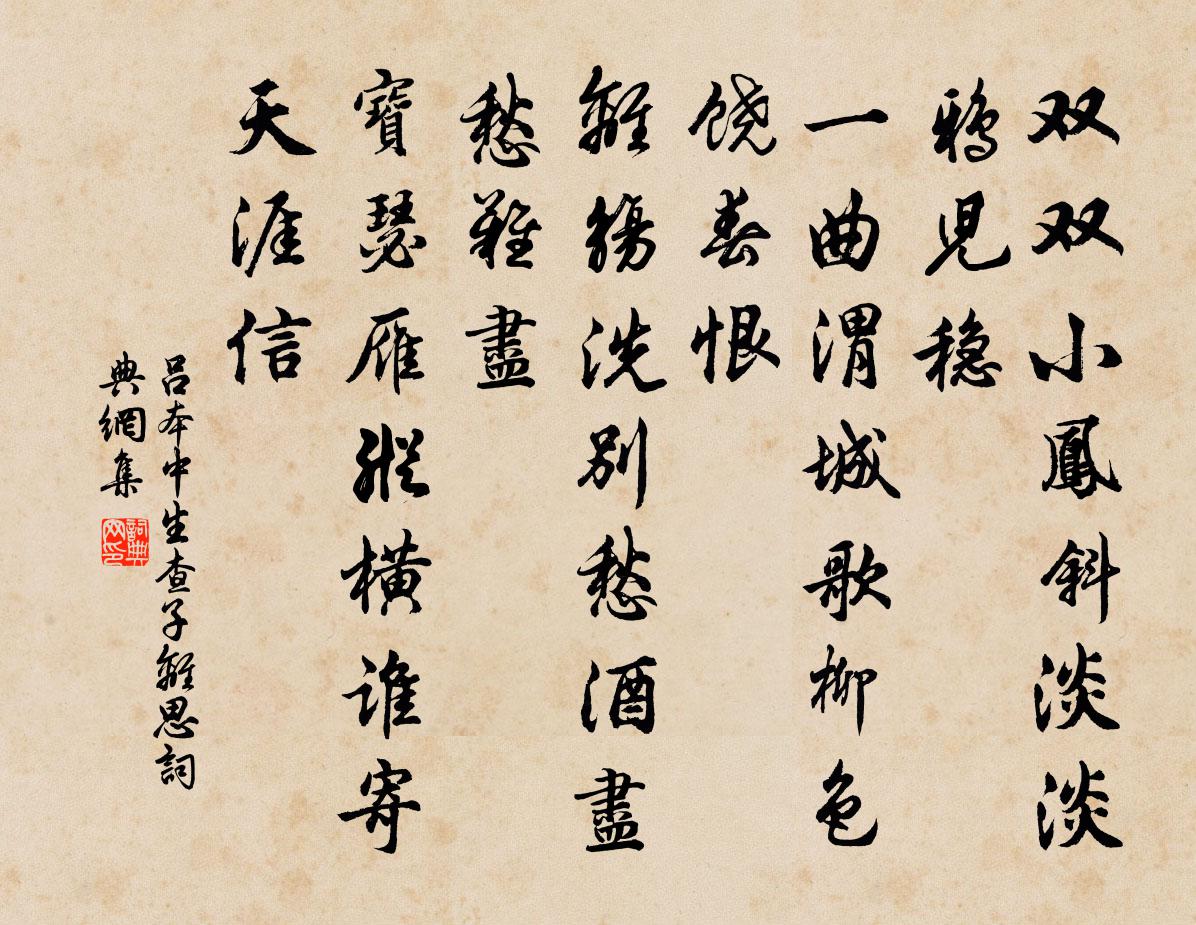 双双小鳳斜淡淡
鴉児穏
一曲渭城歌柳色
饶春恨
離觴洗別愁酒盡
愁難盡
寶瑟雁縱橫谁寄
天涯信
吕本中生查子離思詞
典網集
詞典网印